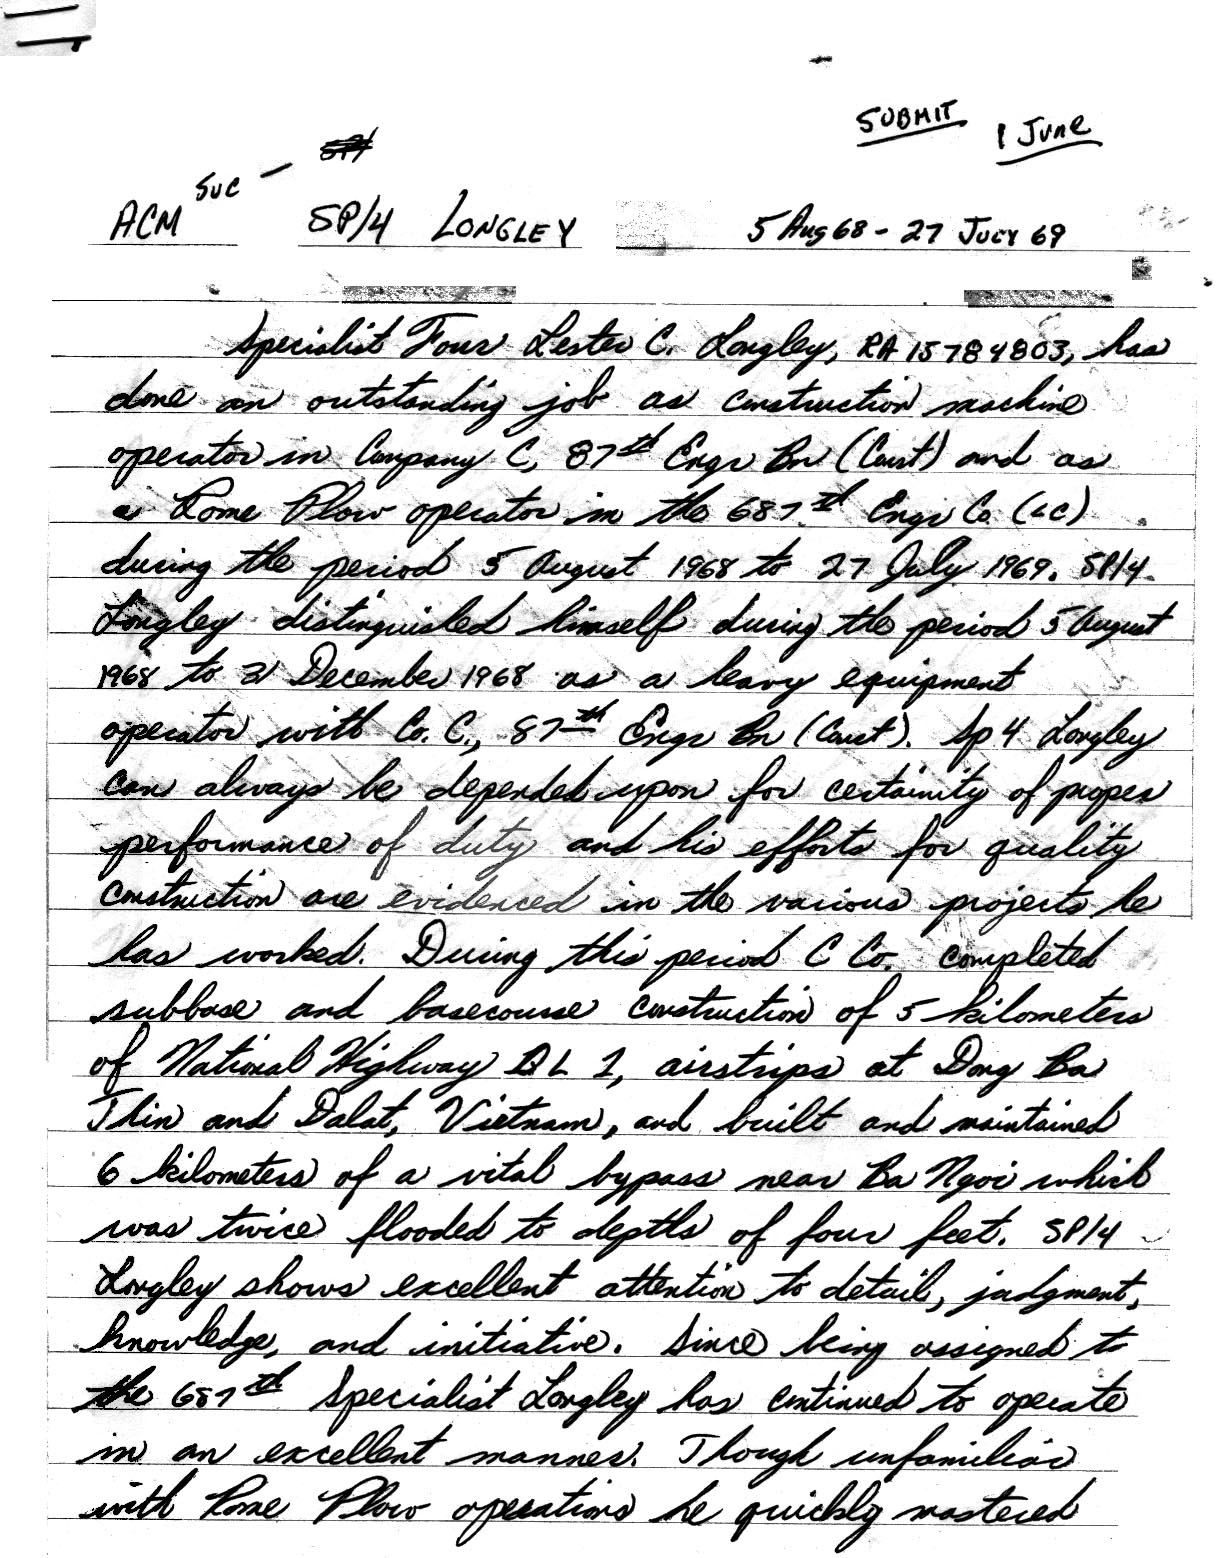 SUBMIT 1 JUNE
SVC -
ACM SP/4 LONGLEY 5 Aug 68 - 27 JULY 69
Specialist Four Lester C. Longley, RA 15784803, has
done an outstanding job as construction machine
operator in Company C, 87th Engr Bn (Const) and as
a Rome Plow operator in the 687th Engr Co (LC)
during the period 5 August 1968 to 27 July 1969. SP/4
Longley distinguished himself during the period 5 August
1968 to 21 December 1968 as a heavy equipment
operator with Co. C, 87th Engr Bn (Const). Sp 4 Longley
can always be depended upon for certainity of proper
performance of duty and his efforts for quality
construction are evidenced in the various projects he
has worked. During this period C Co. completed
subbase and basecourse construction of 5 kilometers
of National Highway QL 1, airstrips at Dong Ba
Thin and Dalat, Vietnam, and built and maintained
6 kilometers of a vital bypass near Ba Ngoi which
was twice flooded to depths of four feet. SP/4
Longley shows excellent attention to detail, judgment,
knowledge, and initiative. Since being assigned to
the 687th Specialist Longley has continued to operate
in an excellent manner. Though unfamiliar
with Rome Plow operations he quickly mastered